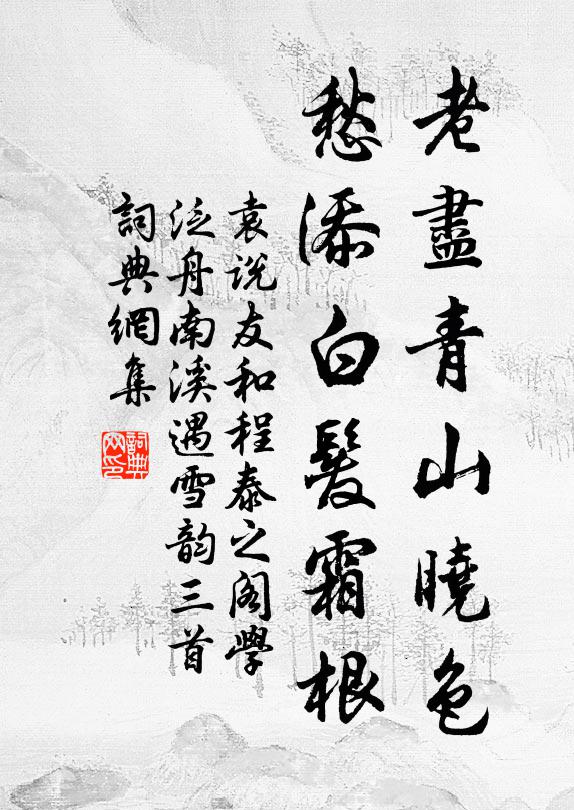 老盡青山曉色
愁添白髮霜根
袁说友和程泰之阁學
泛舟南溪遇雪韵三首
詞典網集
詞典网印